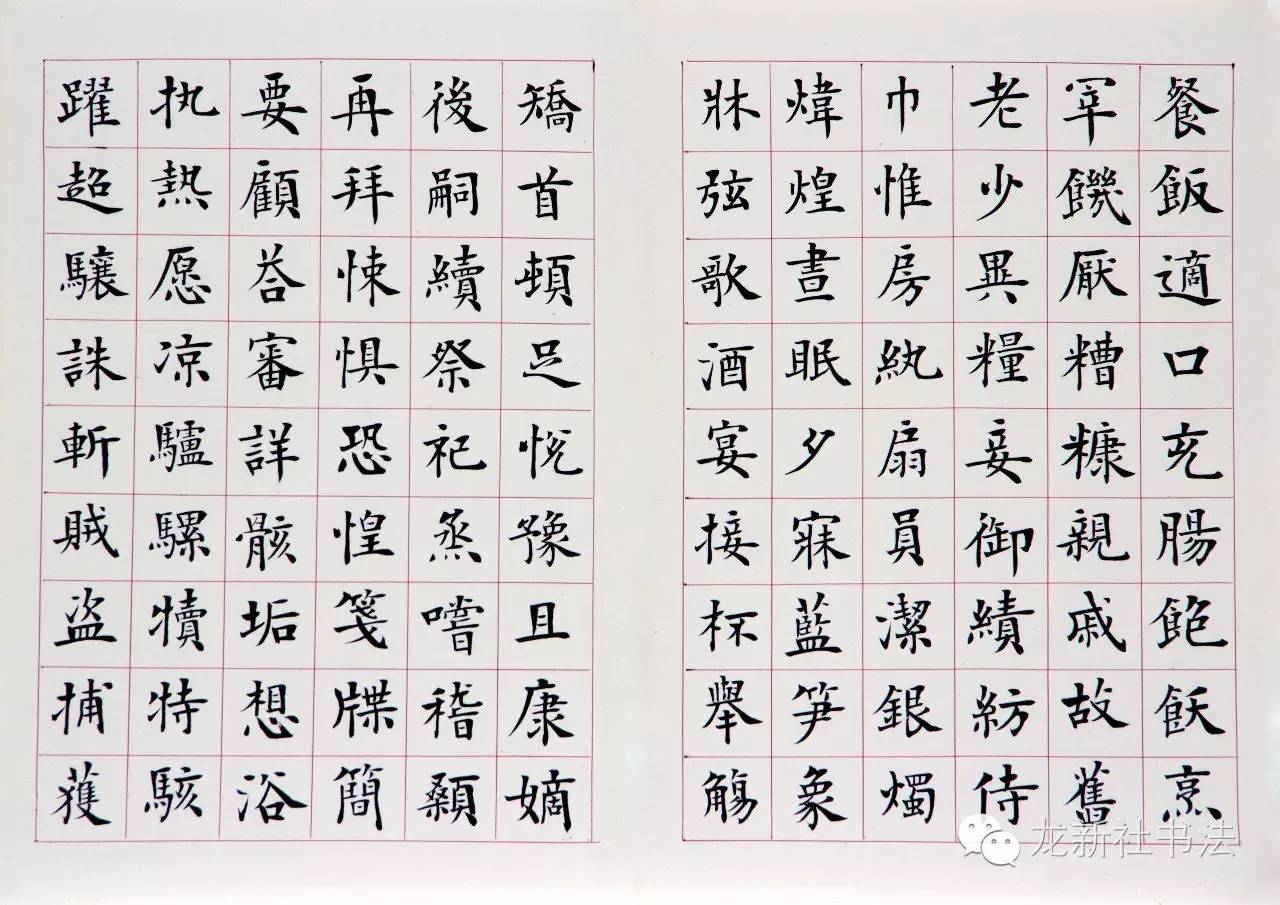 餐飯適口充腸飽飫烹
宰饑厭糟糠親戚故舊
老少異糧妾御績紡侍
巾惟房紈扇員潔銀燭
煒煌晝眠夕寐藍笋象
牀弦歌酒宴接杯舉觴
矯首頓足悅豫且康嫡
後嗣續祭祀烝嚐稽顙
再拜悚惧恐惶箋牒簡
要顧荅審詳骸垢想浴
执熱愿凉驢騾犢特駭
躍超驤誅斬賊盗捕獲
龙新社书法